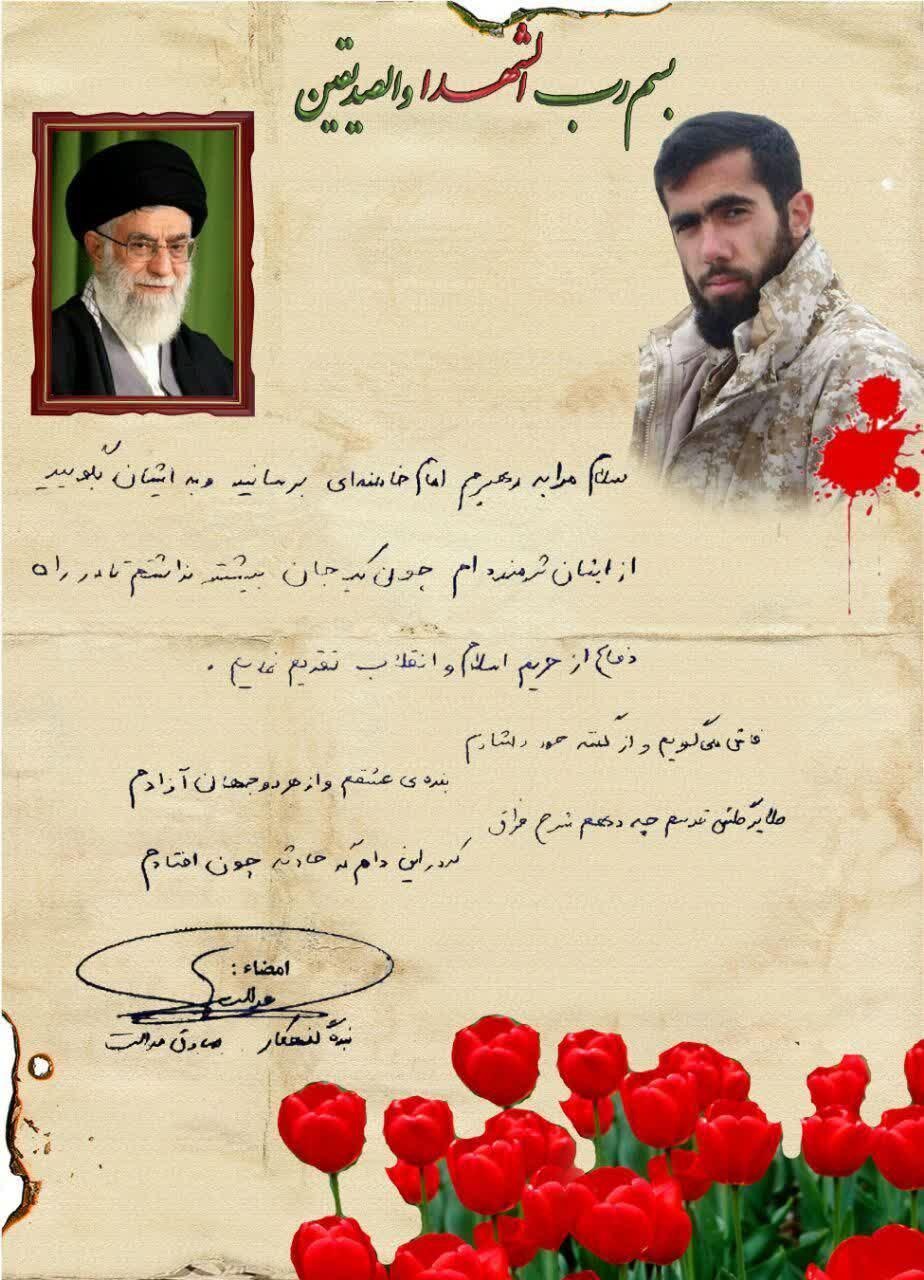 بسم رب الشهدا والصدیقین
سلام مرا به رهبرم امام خامنه‌ای برسانید و به ایشان بگویید
از ایشان شرمنده ام چون یک جان بیشتر نداشتم تا در راه
دفاع از حریم اسلام و انقلاب تقدیم نمایم .
فاش می‌گویم و از گفته خود دلشادم
بنده‌ی عشقم و از هر دو جهان آزادم
طایر گلشن قدسم چه دهم شرح فراق
که در این دامگه حادثه چون افتادم
امضاء :
عدالت
بنده گنهکار صادق عدالت